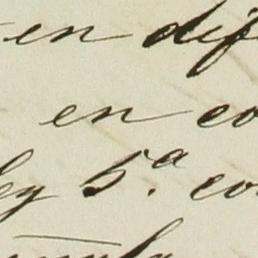 en dif
en co
ley 5.ª co